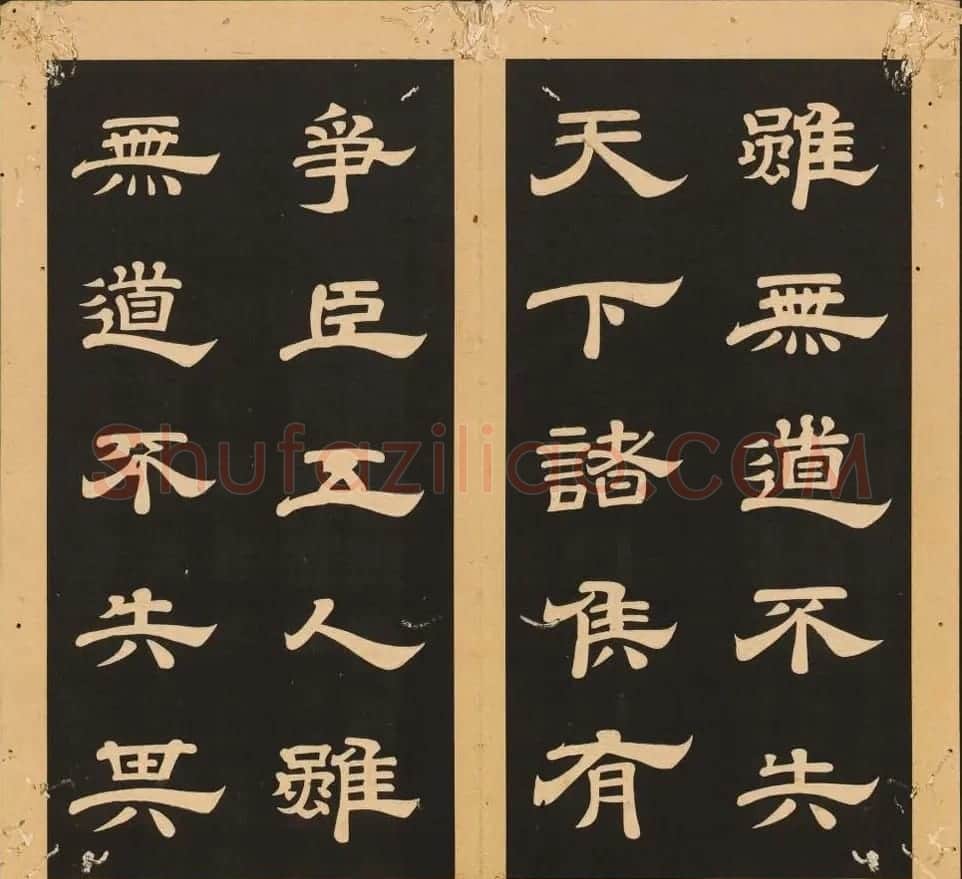 雖無道不失
天下諸侯有
爭臣五人雖
無道不失其
Shufaziliao.COM